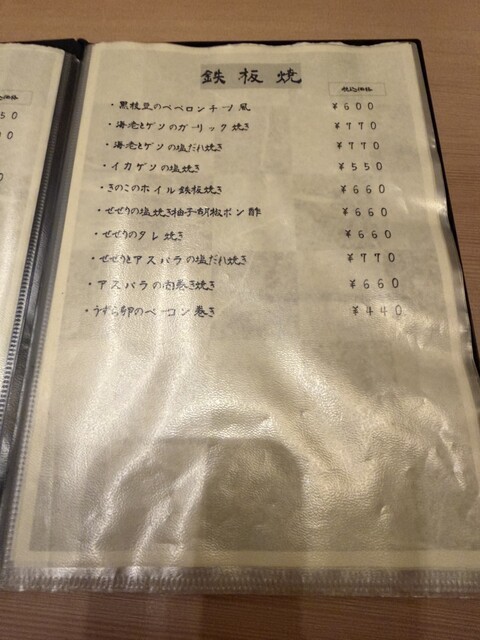 鉄板焼
税込価格
・黒枝豆のペペロンチーノ風 ¥600
・海老とゲソのガーリック焼き ¥770
・海老とゲソの塩だれ焼き ¥770
・イカゲソの塩焼き ¥550
・きのこのホイル鉄板焼き ¥660
・せせりの塩焼き柚子胡椒ポン酢 ¥660
・せせりのタレ焼き ¥660
・せせりとアスパラの塩だれ焼き ¥770
・アスパラの肉巻き焼き ¥660
・うずら卵のベーコン巻き ¥440